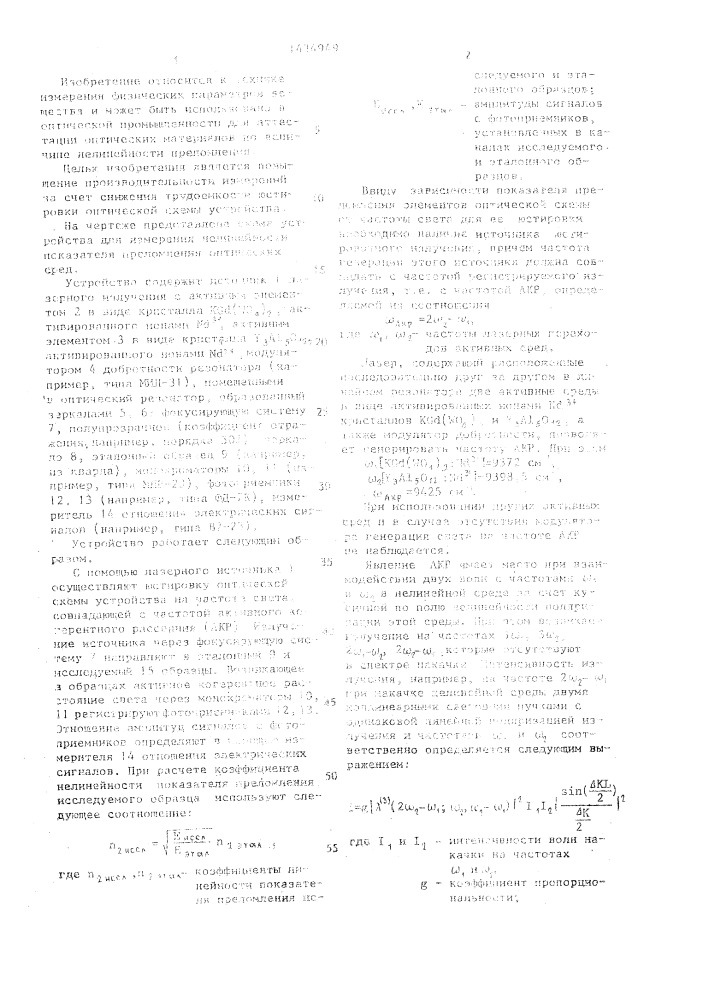 1
2
Изобретение относится к технике
измерения физических параметров ве-
щества и может быть использовано в
оптической промышленности для аттес-
тации оптических материалов по вели-
чине нелинейности преломления.
Целью изобретения является повы-
шение производительности измерений
за счет снижения трудоемкости юсти-
ровки оптической схемы устройства.
На чертеже представлена схема уст-
ройства для измерения нелинейности
показателя преломления оптических
сред.
Устройство содержит источник 1 ла-
зерного излучения с активным элемен-
том 2 в виде кристалла KGd(WO₄)₂, ак-
тивированного ионами Nd³⁺, активным
элементом 3 в виде кристалла Y₃Al₅O₁₂,
активированного ионами Nd³⁺, модуля-
тором 4 добротности резонатора (на-
пример, типа), помещенными
в оптический резонатор, образованный
зеркалами 5, 6, фокусирующую систему
7, полупрозрачное (коэффициент отра-
жения, например, порядка 50%) зеркало
8, эталонный образец 9 (например,
из кварца), монохроматоры 10, 11 (на-
пример, типа), фотоприемники
12, 13 (например, типа), изме-
ритель 14 отношения электрических сиг-
налов (например, типа).
Устройство работает следующим об-
разом.
С помощью лазерного источника 1
осуществляют юстировку оптической
схемы устройства на частоте света,
совпадающей с частотой активного ко-
герентного рассеяния (АКР). Излуче-
ние источника через фокусирующую сис-
тему 7 направляют в эталонный 9 и
исследуемый 15 образцы. Возникающее
в образцах активное когерентное рас-
стояние света через монохроматоры 10,
11 регистрируют фотоприемниками 12, 13.
Отношение амплитуд сигналов с фото-
приемников определяют с помощью из-
мерителя 14 отношения электрических
сигналов. При расчете коэффициента
нелинейности показателя преломления
исследуемого образца используют сле-
дующее соотношение:
n₂ иссл = √(E иссл / E этал) · n₂ этал,
где n₂ иссл, n₂ этал - коэффициенты ли-
нейности показате-
ля преломления ис-
следуемого и эта-
лонного образцов;
E иссл, E этал - амплитуды сигналов
с фотоприемников,
установленных в ка-
налах исследуемого
и эталонного об-
разцов.
Ввиду зависимости показателя пре-
ломления элементов оптической схемы
от частоты света для ее юстировки
необходимо наличие источника юсти-
ровочного излучения, причем частота
генерации этого источника должна сов-
падать с частотой регистрируемого из-
лучения, т.е. с частотой АКР, опреде-
ляемой из соотношения
ω АКР = 2ω₂ - ω₁,
где ω₁, ω₂ - частоты лазерных перехо-
дов активных сред.
Лазер, содержащий расположенные
последовательно друг за другом в ли-
нейном резонаторе две активные среды
в виде активированных ионами Nd³⁺
кристаллов KGd(WO₄)₂ и Y₃Al₅O₁₂, а
также модулятор добротности, позволя-
ет генерировать частоту АКР. При этом
ω АКР = 9425 см⁻¹.
При использовании других активных
сред и в случае отсутствия модулято-
ра генерация света на частоте АКР
не наблюдается.
Явление АКР имеет место при взаи-
модействии двух волн с частотами ω₁
и ω₂ в нелинейной среде за счет ку-
бичной по полю нелинейности поляри-
зации этой среды. При этом возникает
излучение на частотах 3ω₁, 3ω₂,
2ω₁-ω₂, 2ω₂-ω₁, которые отсутствуют
в спектре накачки. Интенсивность из-
лучения, например, на частоте 2ω₂-ω₁
при накачке нелинейной среды двумя
коллинеарными световыми пучками с
одинаковой линейной поляризацией из-
лучения и частотами ω₁ и ω₂ соот-
ветственно определяется следующим вы-
ражением:
I=g|χ⁽³⁾(2ω₂-ω₁; ω₂, ω₂, -ω₁)|² I₁I₂² |sin(ΔKL/2) / (ΔK/2)|²
где I₁ и I₂ - интенсивности волн на-
качки на частотах
ω₁ и ω₂;
g - коэффициент пропорцио-
нальности;